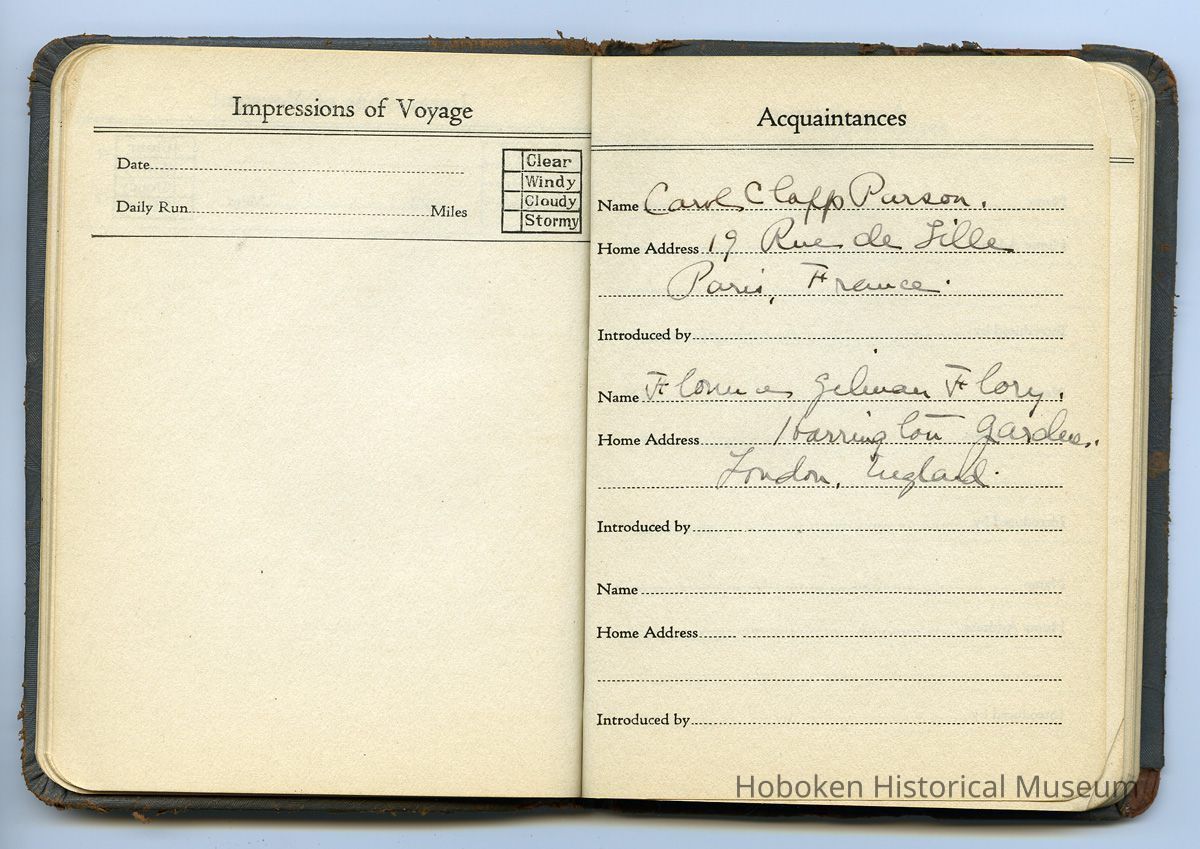 Impressions of Voyage
Date
Daily Run Miles
Clear
Windy
Cloudy
Stormy
Acquaintances
Name Carol Clapp Purson.
Home Address 19 Rue de Lille
Paris, France.
Introduced by
Name Florence Gilman Flory.
Home Address Harrington Gardens.
London, England.
Introduced by
Name
Home Address
Introduced by
Hoboken Historical Museum